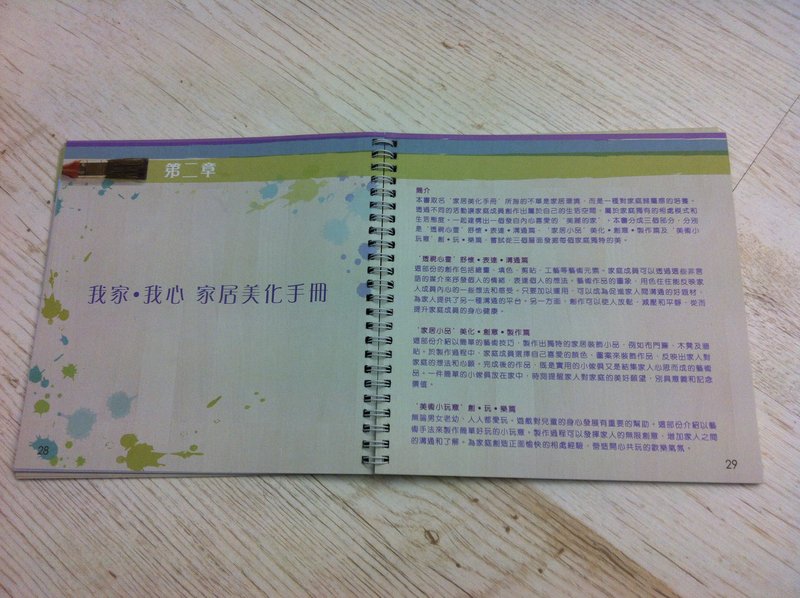 第二章
我家•我心 家居美化手冊
28
簡介
本書取名“家居美化手冊”所指的不單是家居環境，而是一種對家庭歸屬感的培養。
透過不同的活動讓家庭成員創作出屬於自己的生活空間，屬於家庭獨有的相處模式和
生活態度，一起建構出一個發自內心喜愛的“美麗的家”。本書分成三個部分，分別
是“透視心靈”舒懷•表達•溝通篇、“家居小品”美化•創意•製作篇及“美術小
玩意”創•玩•樂篇，嘗試從三個層面發掘每個家庭獨特的美。
“透視心靈”舒懷•表達•溝通篇
這部份的創作包括繪畫、填色、剪貼、工藝等藝術元素。家庭成員可以透過這些非言
語的媒介來抒發個人的情緒，表達個人的想法。藝術作品的圖象、用色往往能反映家
人成員內心的一些想法和感受，只要加以運用，可以成為促進家人間溝通的好題材，
為家人提供了另一種溝通的平台。另一方面，創作可以使人放鬆、減壓和平靜，從而
提升家庭成員的身心健康。
“家居小品”美化•創意•製作篇
這部份介紹以簡單的藝術技巧，製作出獨特的家居裝飾小品，例如布門簾、木凳及牆
貼。於製作過程中，家庭成員選擇自己喜愛的顏色、圖案來裝飾作品，反映出家人對
家庭的想法和心願。完成後的作品，既是實用的小傢俱又是結集家人心思而成的藝術
品。一件簡單的小傢俱放在家中，時刻提醒家人對家庭的美好願望，別具意義和記念
價值。
“美術小玩意”創•玩•樂篇
無論男女老幼，人人都愛玩。遊戲對兒童的身心發展有重要的幫助。這部份介紹以藝
術手法來製作簡單好玩的小玩意。製作過程可以發揮家人的無限創意，增加家人之間
的溝通和了解。為家庭創造正面愉快的相處經驗，營造開心共玩的歡樂氣氛。
29